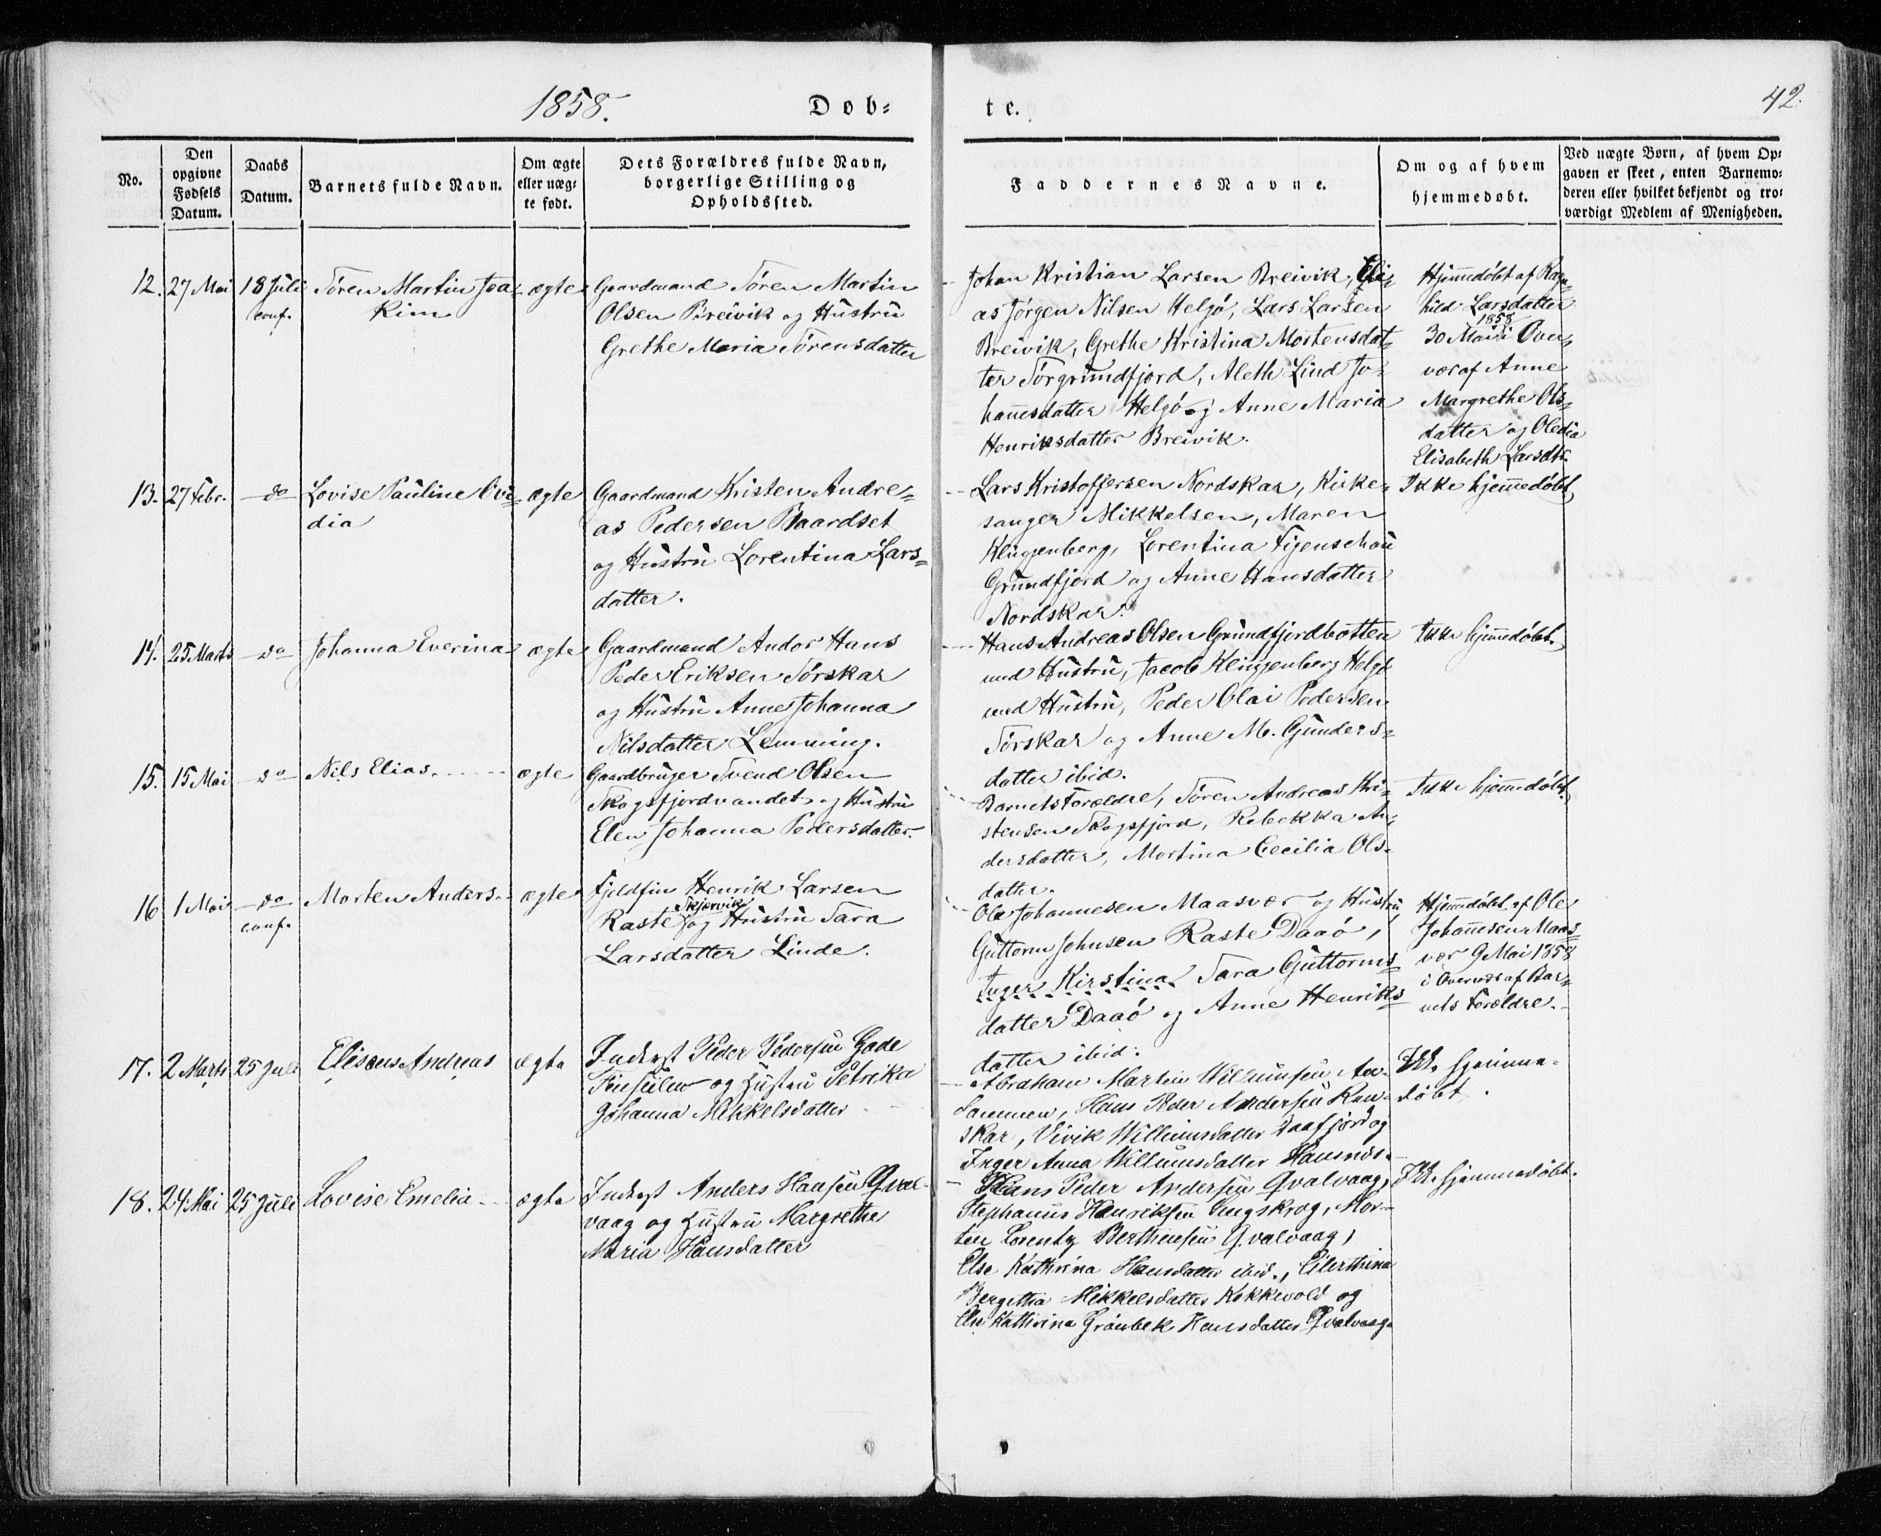 1858.
Dob-
te.
42.
No.
Den opgivne Fødsels Datum.
Daabs Datum.
Barnets fulde Navn.
Om ægte eller uægte født.
Dets Forældres fulde Navn, borgerlige Stilling og Opholdssted.
Faddernes Navne.
Om og af hvem hjemmedøbt.
Ved uægte Børn, af hvem Opgaven er skeet, enten Barnemoderen eller hvilket bekjendt og troværdigt Medlem af Menigheden.
12. 27 Mai 18 Juli conf.
Sören Martin Joa-
kim
ægte
Gaardmand Sören Martin
Olsen Breivik og Hustru
Grethe Maria Sörensdatter
Johan Kristian Larsen Breivik, Eli-
as Jörgen Nilsen Helgö, Lars Larsen
Breivik, Grethe Kristina Mortensdat-
ter Sörgrundfjord, Aleth Lind Jo-
hannesdatter Helgö og Anne Maria
Henriksdatter Breivik.
Hjemmedøbt af Ragn-
hild Larsdatter
30 Mai 1858 i Over-
vær af Anne
Margrethe Ols-
datter og Oledia
Elisabeth Larsdtr.
13. 27 Febr. do
Lovise Pauline Ovi-
dia
ægte
Gaardmand Kristen Andre-
as Pedersen Baardset
og Hustru Lorentina Lars-
datter.
Lars Kristoffersen Nordskar, Kirke-
sanger Mikkelsen, Maren
Klingenberg, Lorentina Figenschou
Grundfjord og Anne Hansdatter
Nordskar.
Ikke hjemmedøbt
14. 25 Marts do
Johanna Everina
ægte
Gaardmand Andor Hans
Peder Eriksen Sörskar
og Hustru Anne Johanna
Nilsdatter Lemming.
Hans Andreas Olsen Grundfjordbotten
med Hustru, Jacob Klingenberg Helgö
med Hustru, Peder Olai Pedersen
Sörskar og Anne M. Gunders-
datter ibid.
Ikke hjemmedøbt.
15. 15 Mai do
Nils Elias
ægte
Gaardbruger Svend Olsen
Skogsfjordvandet og Hustru
Elen Johanna Pedersdatter.
Barnets Forældre, Sören Andreas Kri-
stensen Skogsfjord, Rebekka An-
dersdatter, Martina Cecilia Ols-
datter.
Ikke hjemmedøbt.
16 1 Mai do conf.
Morten Anders
ægte
Fjeldfin Henrik Larsen
Raste Skjervik og Hustru Sara
Larsdatter Linde.
Ole Johannesen Maasvær og Hustru
Guttorm Johnsen Raste Daaö,
Inger Kirstina Sara Guttorms-
datter Daaö og Anne Henriks-
datter ibid.
Hjemmedøbt af Ole
Johannesen Maas-
vær 9 Mai 1858
i Overvær af Bar-
nets Forældre.
17. 2 Marts 25 Juli
Eliseus Andreas
ægte
Inderst Peder Pedersen Gade
og Hustru Petrika
Johanna Mikkelsdatter
Abraham Martin Willumsen
Hans Peder Andersen
skar, Vivik Willumsdatter Daafjord og
Inger Anna Willumsdatter
Ikke hjemme-
døbt.
18. 24 Mai 25 Juli
Lovise Emelia
ægte
Inderst Anders Hansen Qval-
vaag og Hustru Margrethe
Maria Hansdatter
Hans Peder Andersen Qvalvaag,
Stephanus Henriksen Mor-
ten Lorentz Berthinsen Qvalvaag,
Else Kathrina Hansdatter ibid., Eilerthina
Bergithia Mikkelsdatter Kokkevold og
Else Kathrina Grönbek Hansdatter Qvalvaag
Ikke hjemmedøbt.